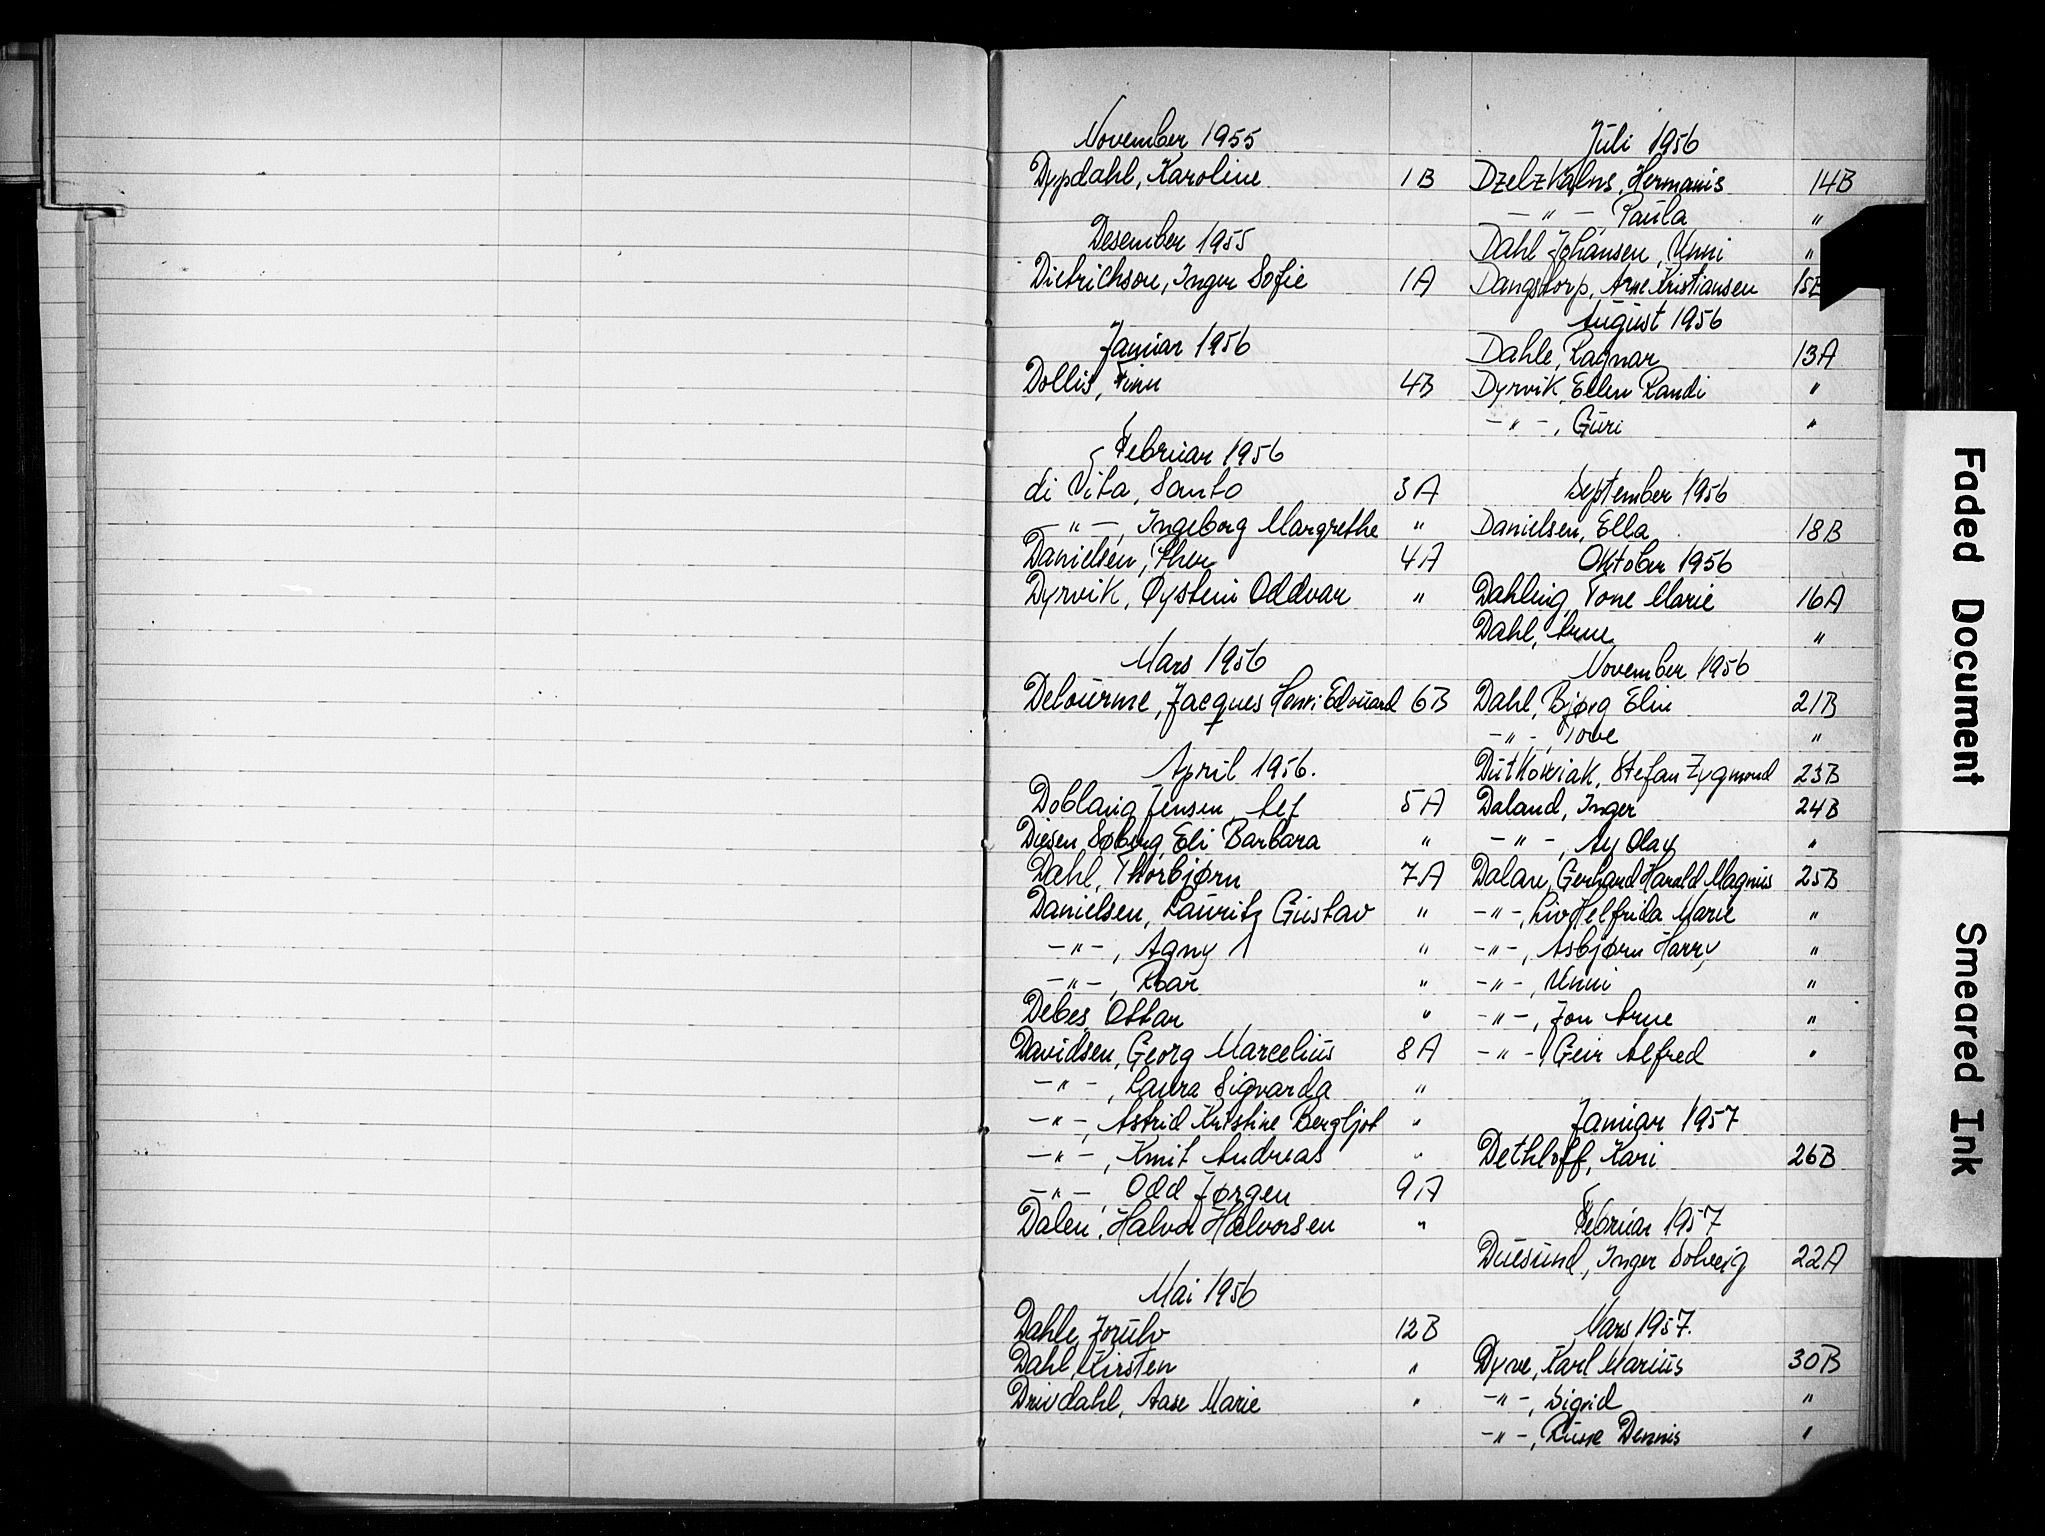 November 1955
Dypdahl, Karoline 1B
Desember 1955
Dietrichson, Inger Sofie 1A
Januar 1956
Dollis, Finn 4B
Februar 1956
di Vita, Santo 3A
- " -, Ingeborg Margrethe "
Danielsen, Ther 4A
Dyrvik, Øystein Oddvar "
Mars 1956
Delourme, Jacques Henri Edouard 6B
April 1956.
Doblaug Jensen, Alf 5A
Diesen Søberg, Eli Barbara "
Dahl, Thorbjørn 7A
Danielsen, Lauritz Gustav "
- " -, Agny "
- " -, Roar "
Debes, Ottar "
Davidsen, Georg Marcelius 8A
- " -, Laura Sigvarda "
- " -, Astrid Kristine Bergljot "
- " -, Knut Andreas "
- " -, Odd Jørgen 9A
Dalen, Halvor Halvorsen "
Mai 1956
Dahle, Jorulv 12B
Dahl, Kirsten "
Drivdahl, Aase Marie "
Juli 1956
Dzelzkalns, Hermanis 14B
- " -, Paula "
Dahl Johansen, Unni "
Dangstorp, Arne Kristiansen 15B
August 1956
Dahle, Ragnar 13A
Dyrvik, Ellen Randi "
- " -, Guri "
September 1956
Danielsen, Ella 18B
Oktober 1956
Dahling, Tone Marie 16A
Dahl, Arne "
November 1956
Dahl, Bjørg Elin 21B
- " -, Tove "
Dutkowiak, Stefan Zygmond 23B
Daland, Inger 24B
- " -, Ay Olay "
Dalan, Gerhard Harald Magnus 25B
- " -, Liv Helfrida Marie "
- " -, Asbjørn Harry "
- " -, Unni "
- " -, Jon Arne "
- " -, Geir Alfred "
Januar 1957
Dethloff, Kari 26B
Februar 1957
Duesund, Inger Solveig 22A
Mars 1957.
Dyve, Karl Marius 30B
- " -, Sigrid "
- " -, Rune Dennis "
Faded Document
Smeared Ink